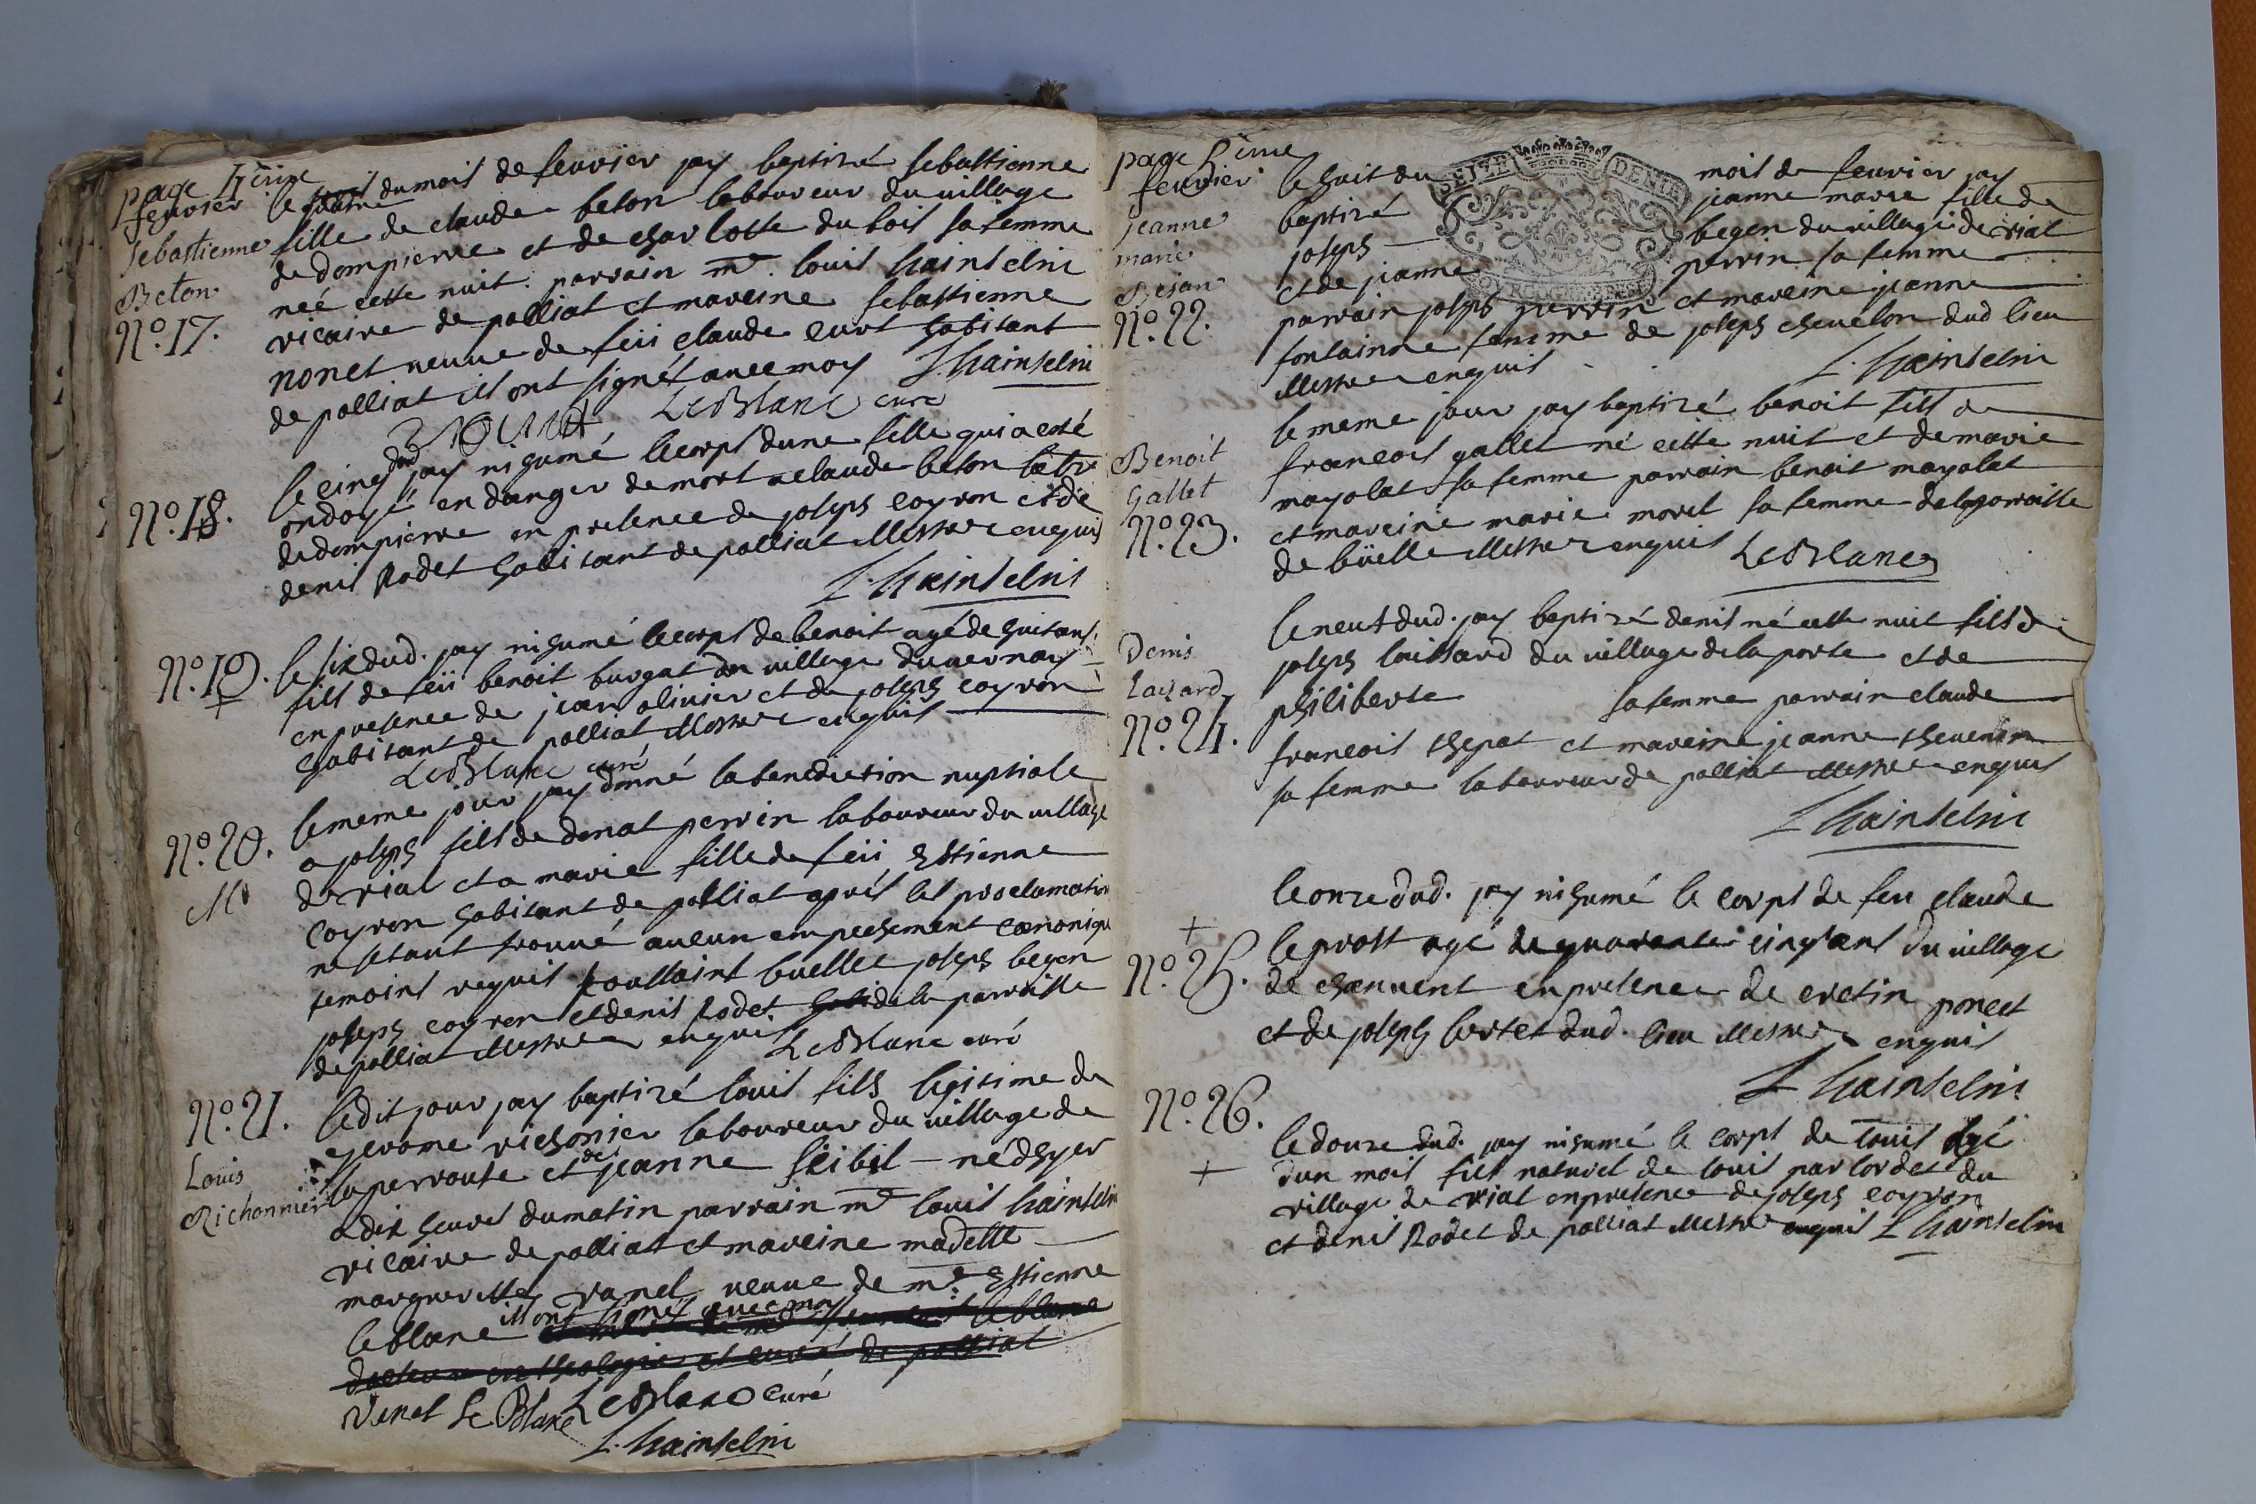 page 4eme
feurier
Sebastienne
Beton
No. 17.
le du mois de feurier jay baptizé sebastienne
fille de claude beton laboureur du uillage
de dompierre et de charlotte du bois sa femme
neé cette nuit parrain mre. louis hainselin
vicaire de polliat et mareine sebastienne
nonet ueuue de feü claude curt habitant
de polliat ils ont signés auec moy L. hainselin
LeBlanc curé
No. 18.
le cinq dud jay nihumé le corps dune fille qui a esté
ondoyé en danger de mort a claude beton
de dompierre en presence de joseph coyron et de
denis Rodet habitant de polliat illestres enquis
L. hainselin
No. 19.
le six dud. jay nihumé le corps de benoit agé de huit ans
fils de feü benoit burgat du uillage du uernay
en presence de jean oliuier et de joseph coyron
habitant de polliat illestres enquis
LeBlanc curé
No. 20.
M
le meme jour jay donné la benediction nuptiale
a joseph fils de donat perrin laboureur du uillage
de rial et a marie fille de feü Estienne
coyron habitant de polliat aprés les proclamation
ne setant trouué aucun empechement canonique
temoins requis toussaint buellet joseph begon
joseph coyron et denis Rodet de la parroisse
de polliat illestres enquis LeBlanc curé
No. 21.
Louis
Richonnier
ledit jour jay baptizé louis fils legitime de
gerome richonier laboureur du uillage de
la perroute et de jeanne né dhyer
a dix heures du matin parrain mre louis hainselin
vicaire de polliat et mareine madelle
margueritte vanel ueuue de mre. Estienne
leblanc ils ont signés auec moy leblanc
docteur en theologie et curé de polliat
Vanel Le Blanc LeBlanc curé
L. hainselin
page 5eme
feurier
Jeanne
marie
Bejan
No. 22.
le huit du mois de feurier jay
baptizé jeanne marie fille de
joseph begon du uillage de rial
et de jeanne perrin sa femme
parrain joseph perrin et mareine jeanne
fontainne femme de joseph cheuelon dud lieu
illestres enquis L. hainselin
Benoit
Gallet
No. 23.
le meme jour jay baptizé benoit fils de
francois gallet né cette nuit et de marie
mayolat sa femme parrain benoit mayolat
et mareine marie morel sa femme de la parroisse
de büelle illestres enquis LeBlanc
Denis
Layard
No. 24.
le neuf dud. jay baptizé denis né cette nuit fils de
joseph laissard du uillage de la porte et de
philiberte sa femme parrain claude
francois thepat et mareine jeanne theuenin
sa femme laboureur de polliat illestres enquis
L hainselin
+
No. 25.
le onze dud. jay nihumé le corps de feu claude
leprost agé de quarante cinq ans du uillage
de chanuent en presence de cretin poncet
et de joseph bertet dud. lieu illestres enquis
L hainselin
No. 26.
+
le douze dud. jay nihumé le corps de louis agé
dun mois fils naturel de louis du
village de rial en presence de joseph coyron
et denis Rodet de polliat illestres enquis L hainselin